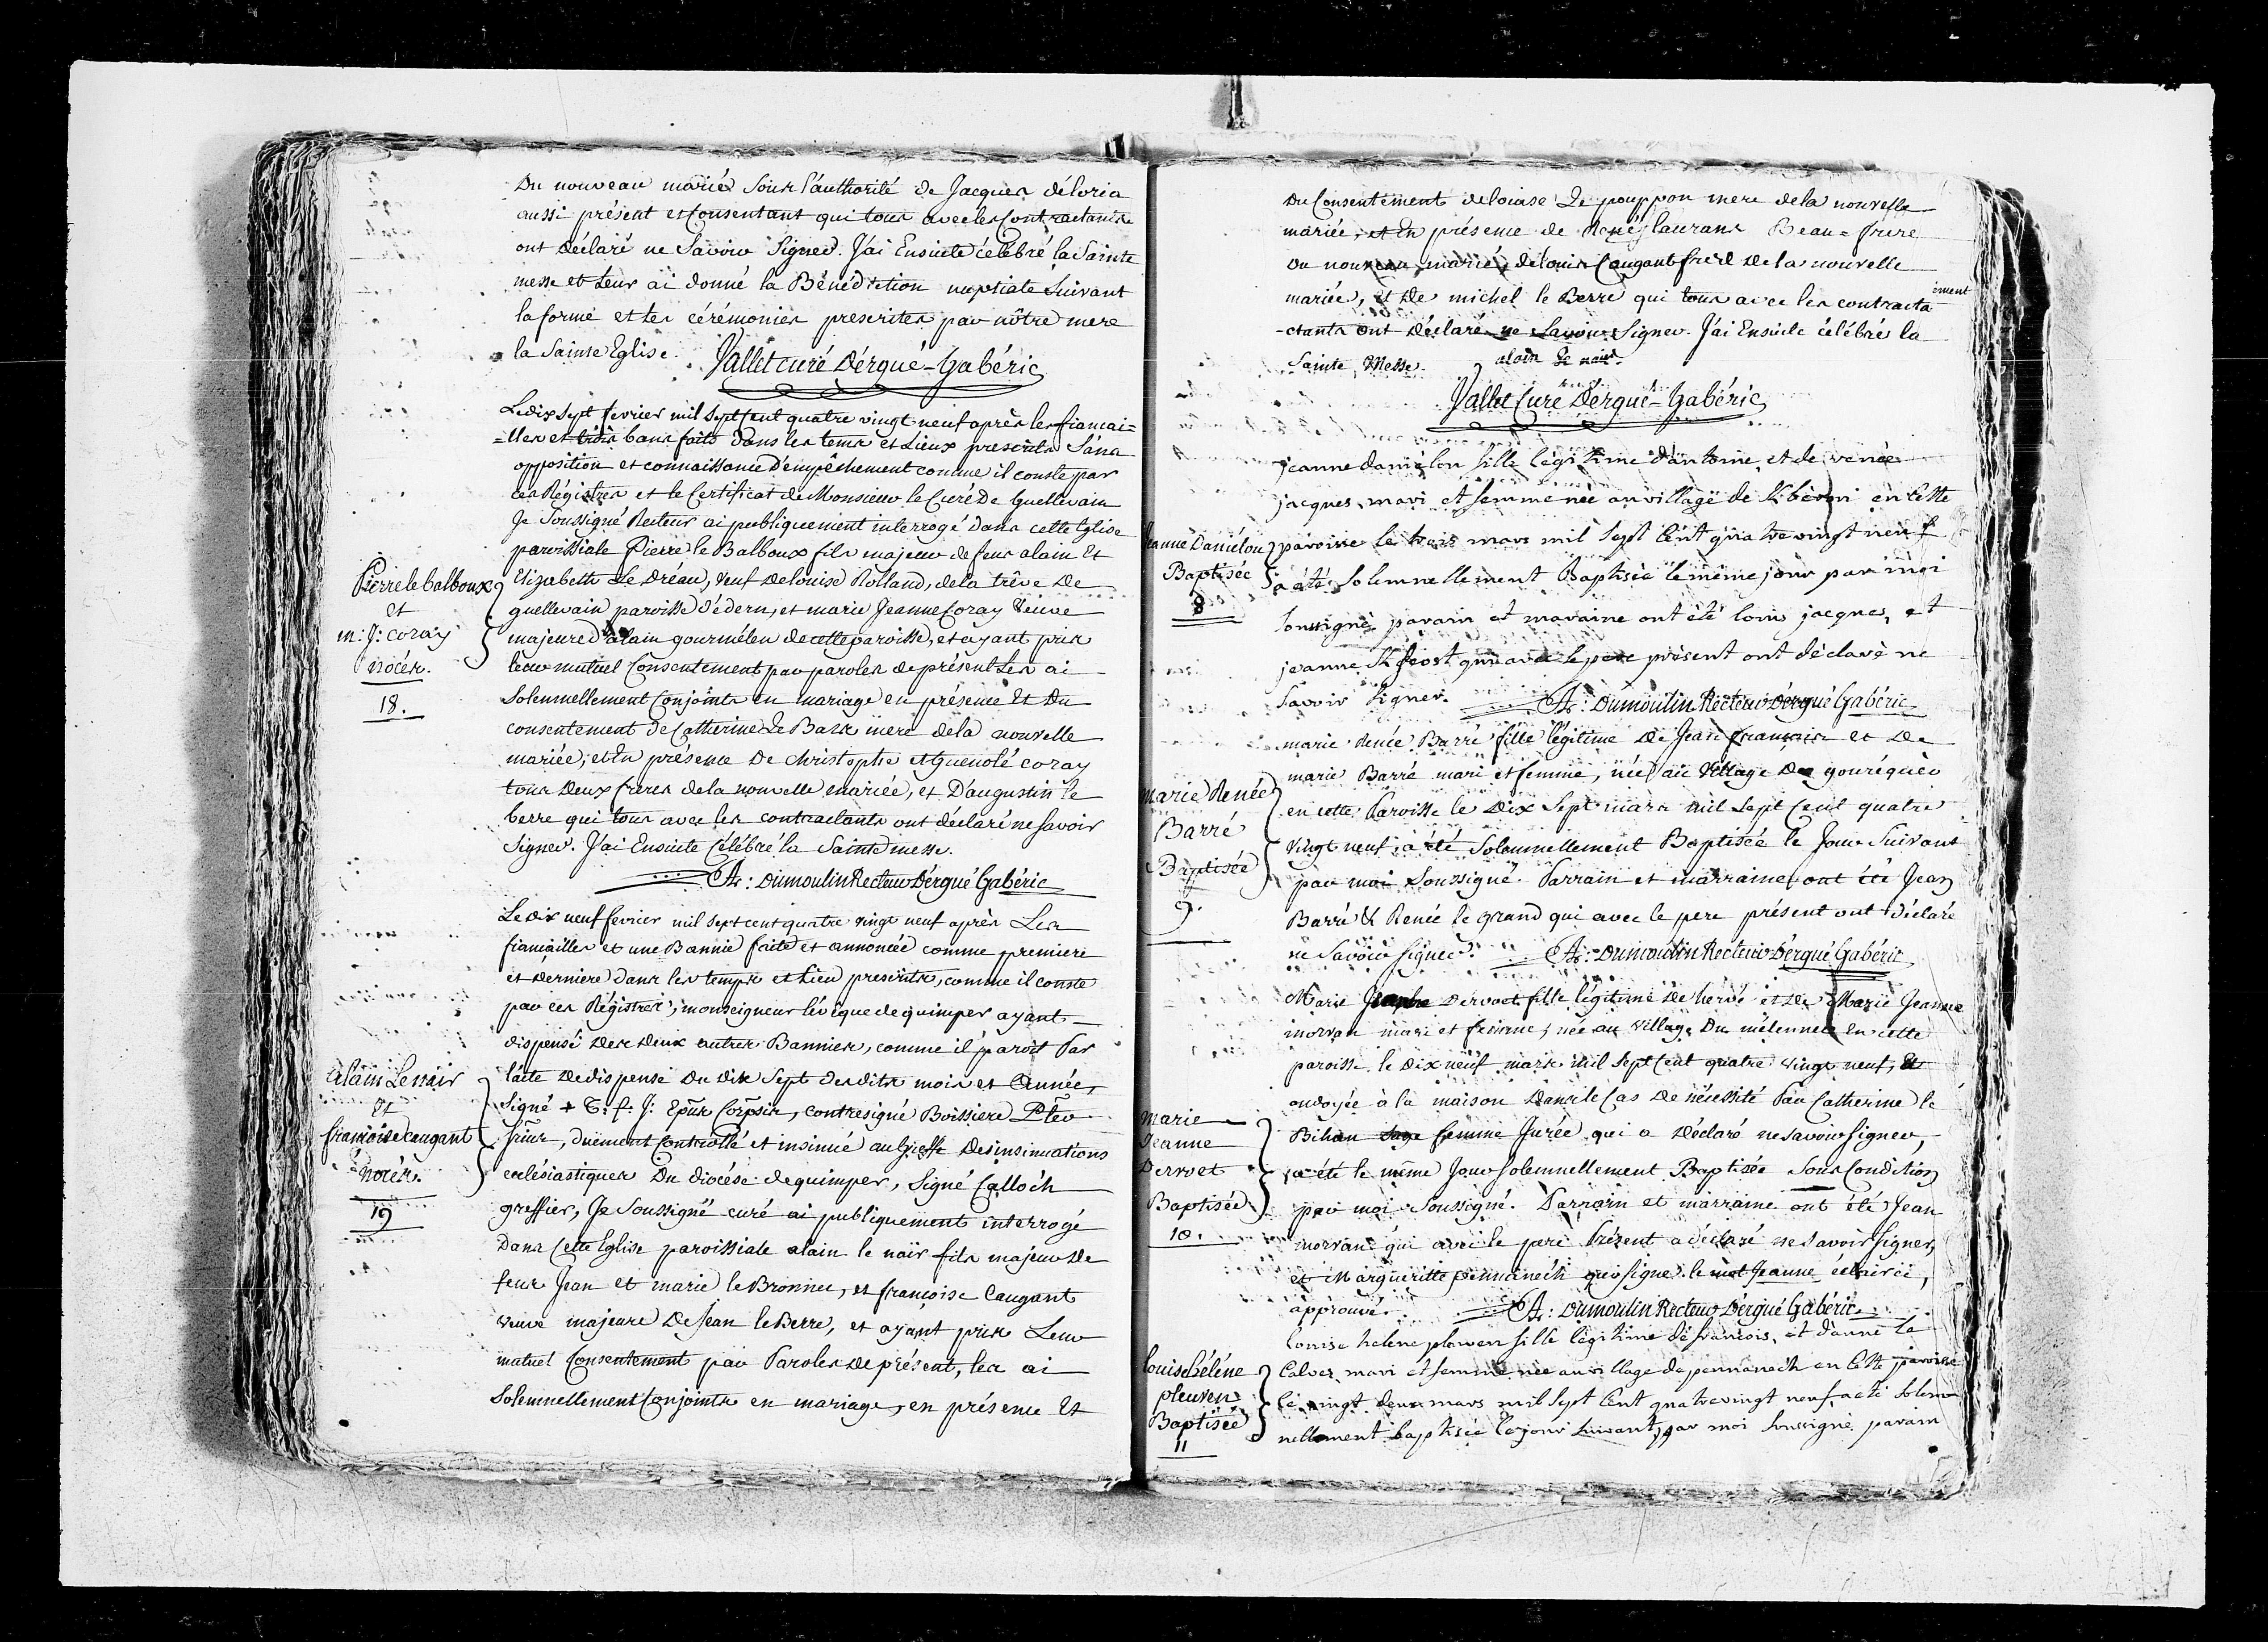 Du nouveau marié sous l'authorité de Jacques déloria
aussi présent et Consentant qui tous avec les Contractants
ont déclaré ne Savoir Signer. J'ai Ensuite célébré la Sainte
messe et leur ai donné la Bénédiction nuptiale Suivant
la forme et les cérémonies prescrites par nôtre mere
la Sainte Eglise. Vallet curé d'ergué-Gabéric
Le dix sept fevrier mil sept cent quatre vingt neuf après les fiancai=
=lles et trois bans faits dans les tems et Lieux prescrits Sans
opposition et connaissance d'empêchement comme il conste par
ces Régistres et le Certificat de Monsieur le Curé de Guellevain
Je Soussigné Recteur ai publiquement interrogé dans cette Eglise
paroissiale Pierre le Balboux fils majeur de feus alain Et
Pierre le balboux
et
m: J: coray
nocés.
18.
Elizabeth Le Dréau, Veuf de louise Rolland, de la trêve De
guellevain paroisse d'édern, et marie Jeanne Coray Veuve
majeure d'alain gourmélen de cette paroisse, et ayant pris
leur mutuel Consentement par paroles de présent les ai
Solemnellement Conjoints en mariage en présence Et Du
consentement de Catherine Le Bask mere dela nouvelle
mariée; et En présence De christophe et guenolé coray
tous deux freres dela nouvelle mariée, et D'augustin le
berre qui tous avec les contractants ont déclaré ne savoir
Signer. J'ai Ensuite Célébré la Sainte messe.
A: Dumoulin Recteur d'ergué Gabéric
Le dix neuf fevrier mil sept cent quatre vingt neuf après Les
fiancailles et une Bannie faite et annoncée comme premiere
et derniere dans les temps et Lieu prescrits, comme il conste
par ces Régistres, monseigneur l'évêque de quimper ayant
dispensé des deux autres Bannies, comme il paroit Par
Alain Le naïr
Et
françoise caugant
nocés.
19
l'acte De dispense Du dix Sept desdits mois et Année,
Signé + T: f: J: Contresigné Boissiere
duëment Controllé et insinué au Greffe Des insinuations
ecclésiastiques Du diocése de quimper, Signé Calloch
greffier, Je Soussigné curé ai publiquement interrogé
Dans Cette Eglise paroissiale alain le naïr fils majeur de
feus Jean et marie le Bronnec, et françoise Caugant
veuve majeure De Jean le Berre, et ayant pris Leur
mutuel Consentement par Paroles de présent, les ai
Solemnellement Conjoints en mariage, en présence Et
Du Consentement de louise Le pouppon mere dela nouvelle
mariée, et En présence de René laurans Beau=frere
Du nouveau marié, de louis Caugant frere De la nouvelle
mariée, et De michel le Berre qui tous avec les contracta
-ctants ont déclaré ne Savoir Signer. J'ai Ensuite célébré la
Sainte Messe. alain Le nair.
Vallet Curé d'ergué-Gabéric
jeanne daniélou fille légitime d'antoine, et de renée
jacques, mari et femme née au village de en cette
Jeanne Daniélou
Baptisée
8
paroisse le trois mars mil sept cent quatre vingt neuf
a été Solemnellement Baptisée le même jour par moi
soussigné parain et maraine ont été louis jacques, et
jeanne qui avec le pere présent ont déclaré ne
Savoir Signer. A: Dumoulin Recteur d'ergué Gabéric
marie Renée Barré fille légitime de Jean françois et De
marie Renée
Barré
Baptisée
9.
marie Barré mari et femme, née au Village de gouréquèr
en cette Paroisse le Dix Sept mars mil sept Cent quatre
vingt neuf, a été Solemnellement Baptisée le Jour Suivant
par moi Soussigné. Parrain et marraine ont été Jean
Barré & Renée le grand qui avec le pere présent ont déclaré
ne Savoir Signer. A: Dumoulin Recteur d'ergué Gabéric
Marie Jeanne Dervoet fille légitime De hervé et De Marie Jeanne
morvan mari et femme, née au Village Du mélennec En cette
paroisse le Dix neuf mars mil sept Cent quatre vingt neuf, Et
ondoyée à la maison Dans le Cas De nécessité Par Catherine le
marie
Jeanne
Dervoet
Baptisée
10.
Bihan sage femme Jurée qui a Déclaré ne savoir Signer,
a été le même Jour Solemnellement Baptisée Sous Condition
par moi Soussigné. Parrain et marraine ont été Jean
morvan qui avec le pere Présent a déclaré ne Savoir Signer,
et Margueritte pennanech qui Signe. le mot Jeanne éclairci,
approuvé. A: Dumoulin Recteur d'ergué Gabéric.
louise helene pleuven fille légitime de francois, et d'anne le
Louise héléne
pleuven
Baptisée
11
Calvez, mari et femme née au village de pennanech en cette paroisse
le vingt deux mars mil sept cent quatre vingt neuf, a été Solem
nellement baptisée le jour suivant, par moi soussigné parain